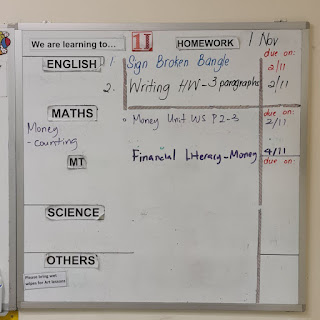 We are learning to... 1J HOMEWORK 1 Nov
due on:
ENGLISH 1. Sign Broken Bangle 2/11
2. Writing HW - 3 paragraphs 2/11
MATHS due on:
Money - counting
• Money Unit WS P2-3 2/11
Financial Literary - Money 4/11
MT due on:
SCIENCE
OTHERS
Please bring wet
wipes for Art lessons